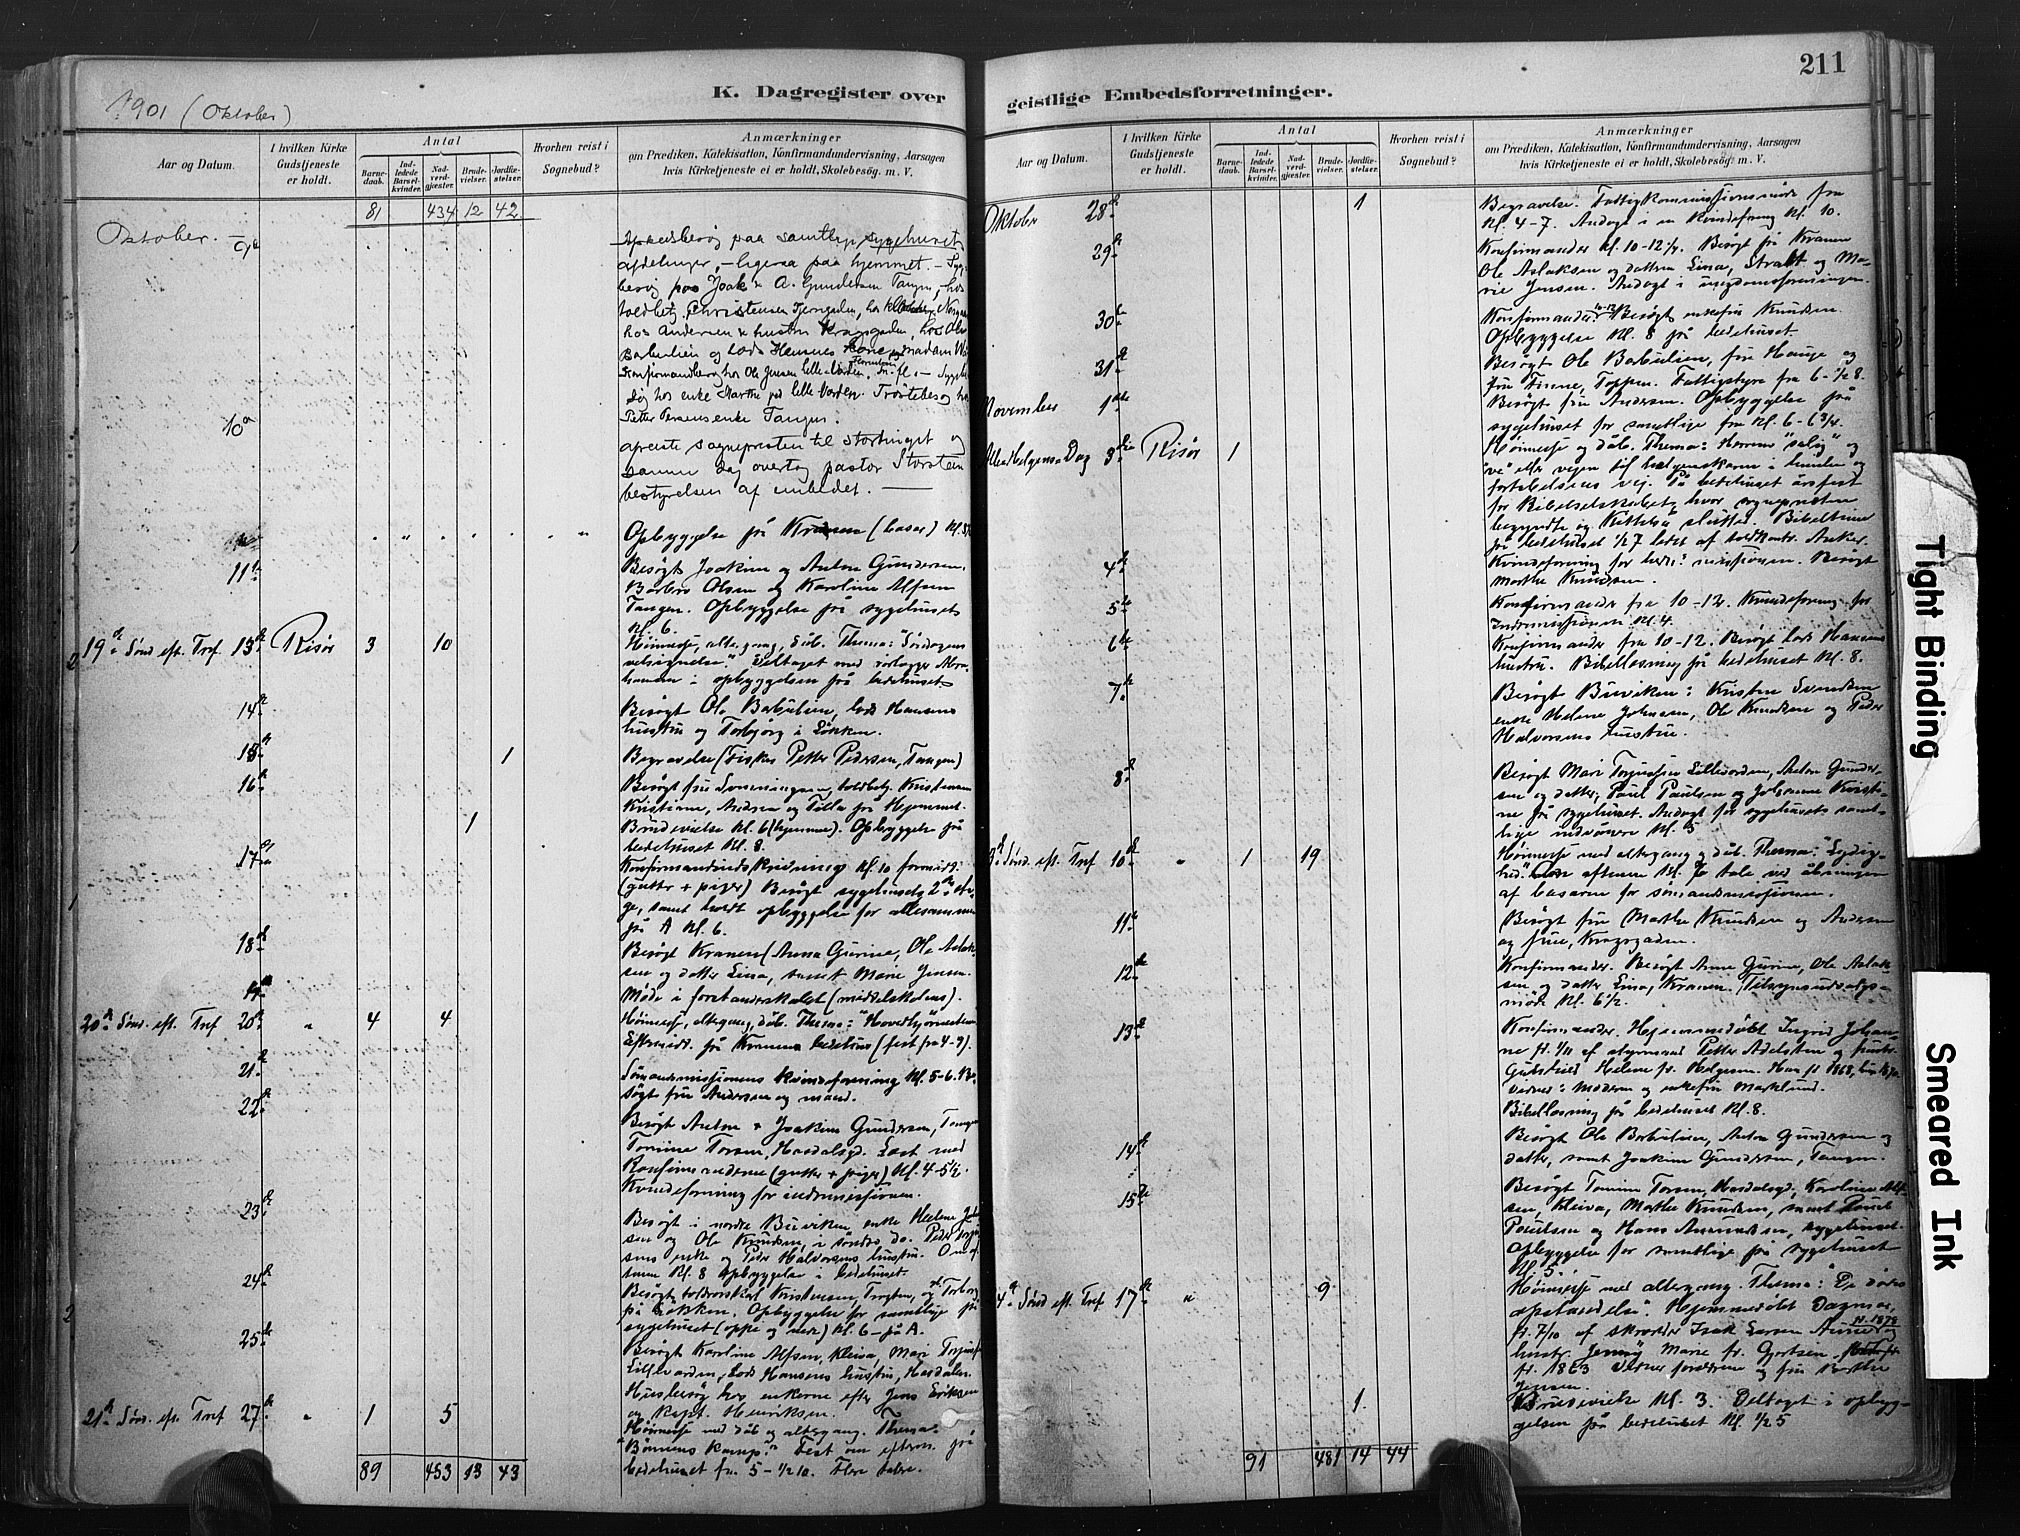 211
1901 (Oktober)
K. Dagregister over
geistlige Embedsforretninger.
Aar og Datum.
I hvilken Kirke Gudstjeneste er holdt.
Antal
Barnedaab.
Indledede Barselkvinder.
Nadverdgjester.
Brudevielser.
Jordfæstelser.
Hvorhen reist i Sognebud?
Anmærkninger
om Prædiken, Katekisation, Konfirmandundervisning, Aarsagen
hvis Kirketjeneste ei er holdt, Skolebesøg. m. V.
81 434 12 42
Oktober. 9de
Afskedsbesøg paa samtlige sygehusets
afdelinger, – ligesaa paa hjemmet. –
besøg paa Joak. & A. Gundersen Tangen, – hos
toldbetj. Christensen Tjerngaden, hos
hos Andersen & hustru Kragsgaden, hos Ole
Barbulien og lods Hansens kone
Konfirmandbesøg hos Ole Jensen Lille-Vorden
hos enke Marthe på Lille Vorden. Trøstebesøg hos
Petter Persens enke Tangen.
10de
afreiste sognepresten til stortinget og
samme dag overtog pastor Storsten
bestyrelsen af embedet. —
Opbyggelse på Kranen (basar) Kl.
11te
Besøgt Joakim og Anton Gundersen,
Barbro Olsen og Karoline Alfsen
Tangen. Opbyggelse på sygehuset
Kl. 6.
19de Sønd. eft. Tref. 13de Risør 3 10
Høimesse, altergang, dåb. Thema: "Søndagens
velsignelse." Deltaget med
i opbyggelsen på bedehuset
14de
Besøgt Ole Barbulien, lods Hansens
hustru og Torbjørg i Løkken.
15de 1
Begravelse (Fisker Petter Pedersen, Tangen)
16de
Besøgt fru Sønningsen, toldbetj. Kristensen
Kristiane, Andrea og Tilla på Hjemmet.
1
Brudevielse Kl. 6 (hjemme). Opbyggelse på
bedehuset Kl. 8.
17de
Konfirmandindskrivning Kl. 10 formidd.
(gutter + piger) Besøgt sygehusets 2den
samt holdt opbyggelse for allesammen
på A Kl. 6.
18de
Besøgt Kranen (Anna Gurine, Ole Aslak-
sen og datter Lina, samt Marie Jensen.
19de
Møde i forstanderskabet (middelskolens).
20de Sønd. eft. Tref 20de " 4 4
Høimesse, altergang, dåb. Thema: "Hovedhjørnestenen
Eftermidd. på Kranens bedehus (fest fra 4-9).
21de
Sømandsmissionens kvindeforening Kl. 5-6. Be-
søgt fru Andersen og mand.
22de
Besøgt Anton & Joakim Gundersen, Tangen
Tomine Torsen, Hasdalsgd. Læst med
Konfirmanderne (gutter + piger) Kl. 4-5½
Kvindeforening for indremissionen.
23de
Besøgt i nordre Buviken, enke Helene Johan
sen og Ole Knudsen, i søndre do. Peder
sens enke og Peder Halvorsens hustru. Om af-
tenen Kl. 8 opbyggelse i bedehuset.
24de
Besøgt Kristensen, og Torborg
på Løkken. Opbyggelse for samtlige på
sygehuset (oppe og nede) Kl. 6 – på A.
25de
Besøgt Karoline Alfsen, Kleiva, Mari
Lillevarden, Lods Hansens hustru, Hasdalen.
Husbesøg hos enkerne efter Jens Eriksen
og kapt. Henriksen.
21de Sønd. eft. Tref 27de " 1 5
Høimesse med dåb og altergang. Thema:
"Børnenes kamp." Fest om efterm. på
bedehuset fra 5 – ½10. Flere talere.
89 453 13 43
Aar og Datum.
I hvilken Kirke Gudstjeneste er holdt.
Antal
Barnedaab.
Indledede Barselkvinder.
Nadverdgjester.
Brudevielser.
Jordfæstelser.
Hvorhen reist i Sognebud?
Anmærkninger
om Prædiken, Katekisation, Konfirmandundervisning, Aarsagen
hvis Kirketjeneste ei er holdt, Skolebesøg. m. V.
Oktober 28de 1
Begravelse. Fattigkommissionsmøde fra
Kl. 4-7. Andagt i en kvindeforening Kl. 10.
29de
Konfirmander Kl. 10-12½. Besøgt på Kranen
Ole Aslaksen og datteren Lina, Stralt og Ma-
rie Jensen. Andagt i ungdomsforeningen.
30te
Konfirmander 10-12. Besøgt enkefru Knudsen.
Opbyggelse Kl. 8 på bedehuset.
31te
Besøgt Ole Barbulien, fru Hauge og
fru Finne, Toppen. Fattigstyre fra 6-½8.
November 1ste
Besøgt fru Andersen. Opbyggelse på
sygehuset for samtlige fra Kl. 6-6¾.
Allehelgens Dag 3die Risør 1
Høimesse og dåb. Thema: Herrens "salig" og
"ve" eller veien til helgenskaren i himlen og
fortabelsens vej. På bedehuset årsfest
for Bibelselskabet, hvor sognepresten
begyndte og Kittelsen sluttet. Bibeltime
på bedehuset ½7 ledet af toldkontr. Anker.
4de
Kvindeforening for hedn: missionen. Besøgt
Marthe Knudsen.
5te
Konfirmander fra 10-12. Kvindeforening for
Indremissionen Kl. 4.
6te
Konfirmander fra 10-12. Besøgt lods Hansens
hustru. Bibellæsning på bedehuset Kl. 8.
7de
Besøgt Buviken: Kristen Svendsen
enke Helene Johnsen, Ole Knudsen og Peder
Halvorsens hustru.
8de
Besøgt Mari Lillevorden, Anton Gunder-
sen og datter, Paul Paulsen og Johanne Kristi-
ne på sygehuset. Andagt for sygehusets samt-
lige indvånere Kl. 5
23de Sønd. eft. Tref 10de " 1 19
Høimesse med altergang og dåb. Thema: "Lydig-
hed." Om aftenen Kl. 7 tale ved åbningen
af basaren for sømandsmissionen.
11te
Besøgt fru Marthe Knudsen og Andersen
og frue, Kragsgaden.
12te
Konfirmander. Besøgt Anne Gurine, Ole Aslak-
sen og datter Lina, Kranen. Tilsynsudvalgs-
møde Kl. 6½.
13de
Konfirmander. Hjemmedøbt Ingrid Johan-
ne f. 1/11 af styrmand Petter Adelsten og hustr.
Gubstad Helene f. Helgesen. Han f. 1868, hun
vidner: Moderen og enkefru Marklund.
Bibellæsning på bedehuset Kl. 8.
14de
Besøgt Ole Barbulien, Anton Gundersen og
datter, samt Joakim Gundersen, Tangen.
15de
Besøgt Tomine Torsen, Hasdalsgd, Karoline Alf-
sen, Kleiva, Marthe Knudsen, samt Paul
Paulsen og Hans Amundsen, sygehuset.
Opbyggelse for samtlige på sygehuset
Kl. 5.
24de Sønd eft. Tref 17de " 9
Høimesse med altergang. Thema: "De dødes
opstandelse". Hjemmedøbt Dagmar,
f. 7/10 af skrædder Isak Larsen f. 1878
hustr. Jenny Marie f. Gjertsen
f. 1863 Vidner forældrene og fru Marthe
Jensen.
1
Brudevielse Kl. 3. Deltaget i opbyg-
gelsen på bedehuset Kl. ½5
91 481 14 44
Tight Binding
Smeared Ink